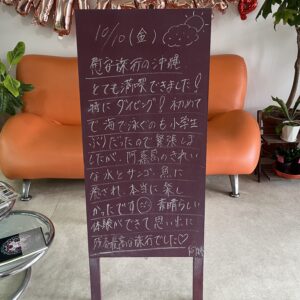 10/10(金)
慰安旅行の沖縄
とても満喫できました!
特にダイビング! 初めて
で海で泳ぐのも小学生
ぶりだったので緊張しま
したが、阿嘉島のきれい
な水とサンゴ、魚に
癒され、本当に楽し
かったです 素晴らしい
体験ができて思い出に
残る最高な旅行でした♡